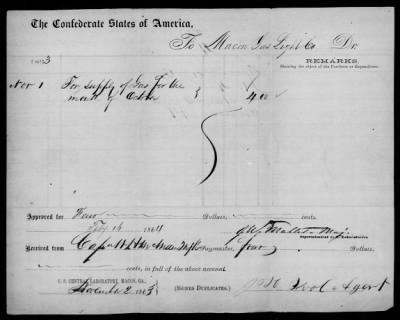 The Confederate States of America,
To Macon Gas Light Co Dr.
REMARKS.
Showing the object of the Purchase or Expenditure.
1863
Nov 1 For supply of Gas for the
month of October } 4.00
Approved for Four Dollars, cents.
Feby 16 1864
J W Mallet Maj
Superintendent of Laboratories
Received from Capt Paymaster, four Dollars,
cents, in full of the above account.
C. S. CENTRAL LABORATORY, MACON, GA.
December 2 1863 (SIGNED DUPLICATES.) Agent